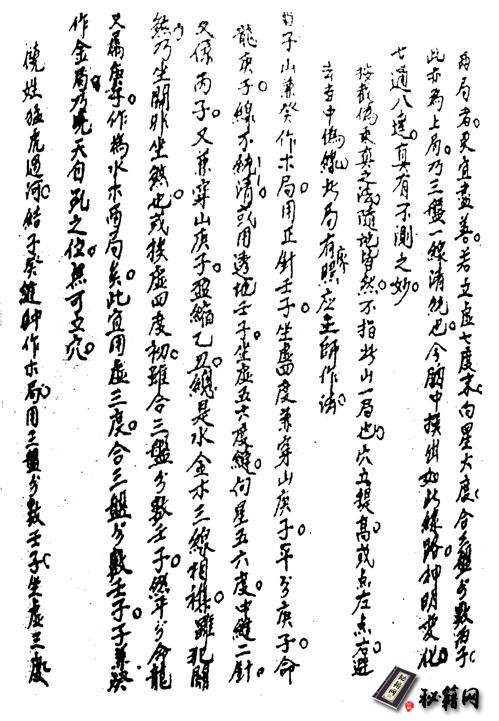 両局者更宜盡善若立虛七度末向星六度合三盤分數丙子
此亦為上局乃三盤一線清純也今閱中揆似如此線路神明变化
七通八達真有不測之妙
按截偽求真之法隨地皆然不指此山一局也穴立提高或点左点右避
去当中偽線此局有廖應主師作法
子山兼癸作木局用正針壬子坐虛四度兼穿山庚子平分庚子命
龍庚子線不純清或用透地壬子坐虛五六度縫向星五六度中縫二針
又係丙子又兼穿山庚子盈縮乙丑總是水金木三線相襍雖犯關
然乃坐關非坐煞也或挨虛四度初雖合三盤分數壬子然平分命龍
又屬庚子作為水木両局矣此宜用虛三度合三盤分數壬子子兼癸
作金局乃
天自死之位無可立穴
饒姓猛虎過河結子癸縫
作木局用三盤分數壬子坐虛三度
秘籍网